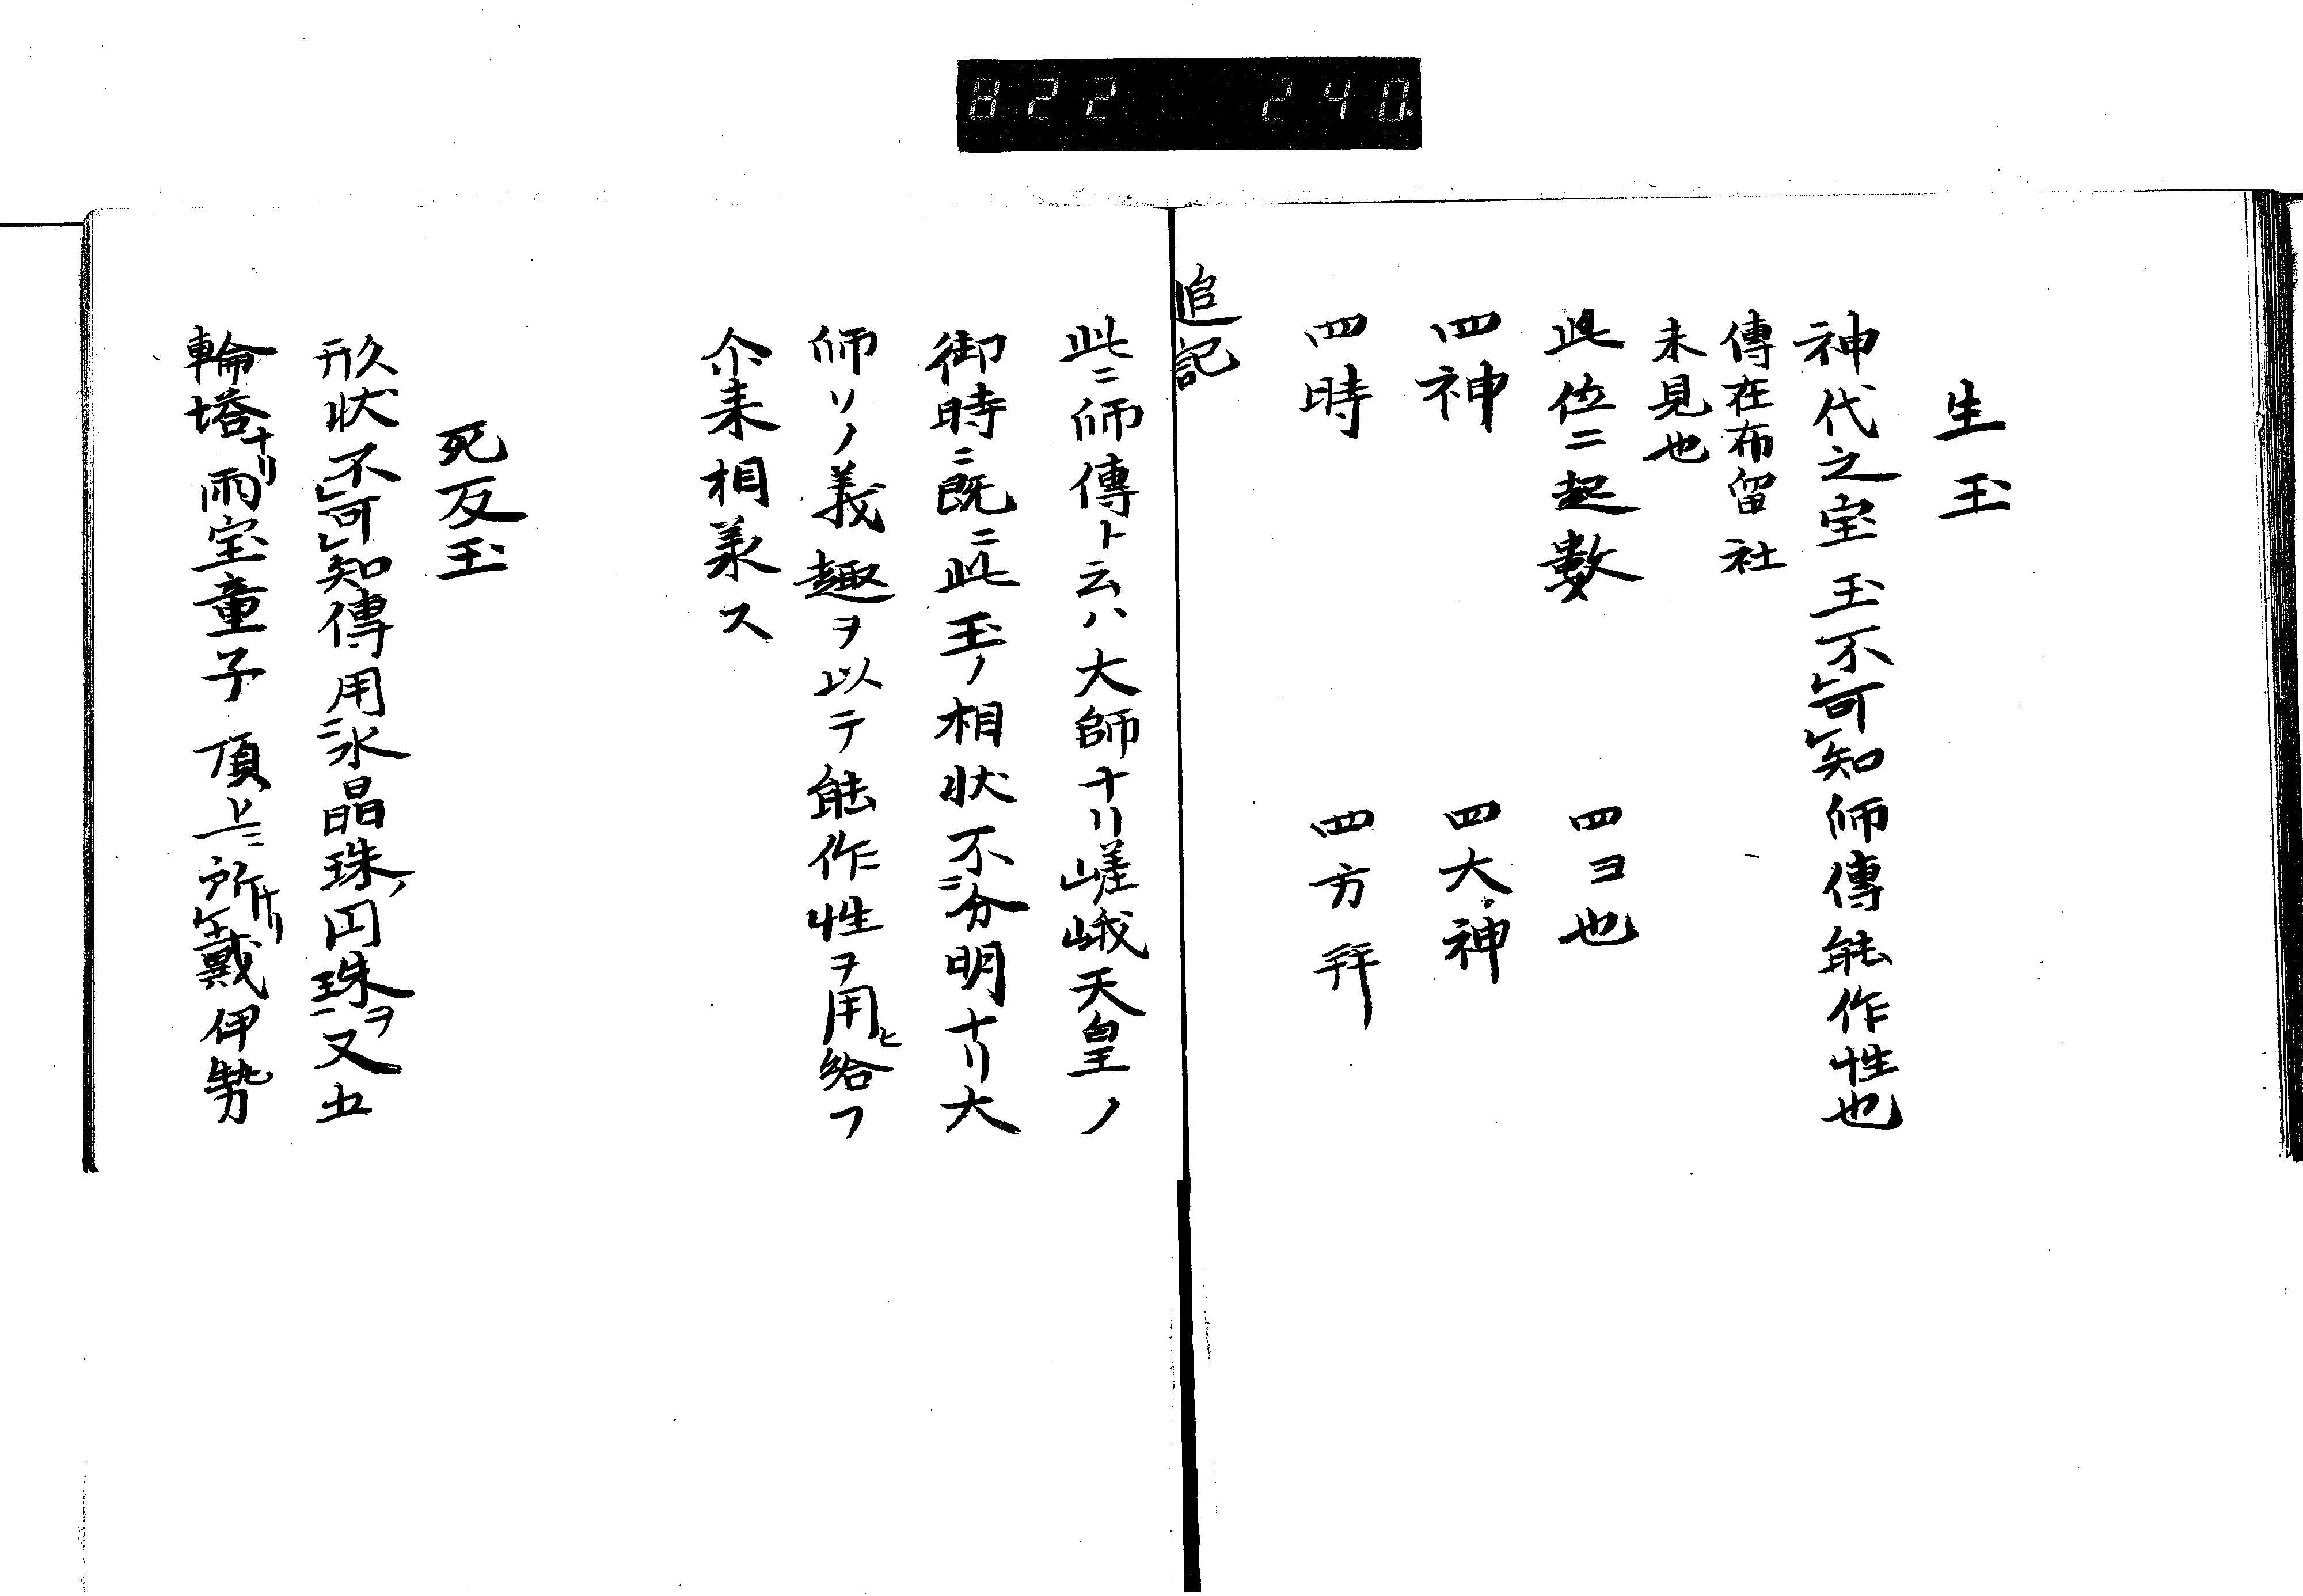 822 240
生玉
神代之宝玉不㆑可㆑知師傳能作性也
傳在布留社
未見也
此位ニ起數 四ヨ也
四神 四大神
四時 四方拜
追記
此ニ師傳ト云ハ大師ナリ嵯峨天皇ノ
御時ニ既ニ此玉ノ相状不㆓分明ナリ大
師ソノ義趣ヲ以テ能作性ヲ用ヒ給フ
尒来相兼ス
死反玉
形状不㆑可㆑知傳用㆓氷晶珠ノ円珠ヲ㆒又五
輪塔ナリ雨宝童子頂上ニ所ナリ㆑戴伊勢